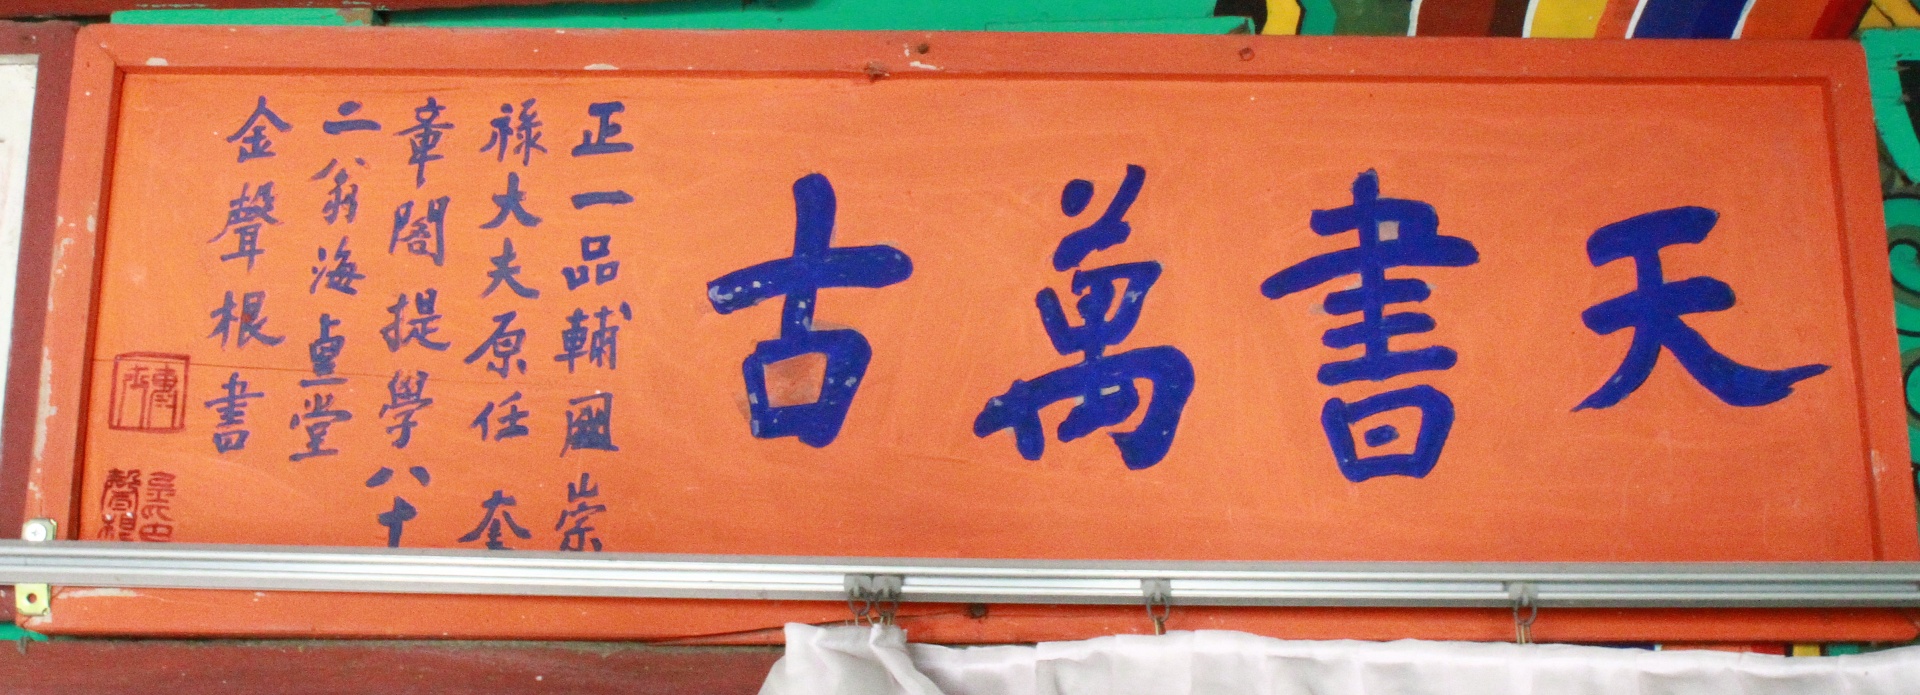 天書萬古
正一品輔國崇
祿大夫原任奎
章閣提學八十
二翁海堂
金聲根書